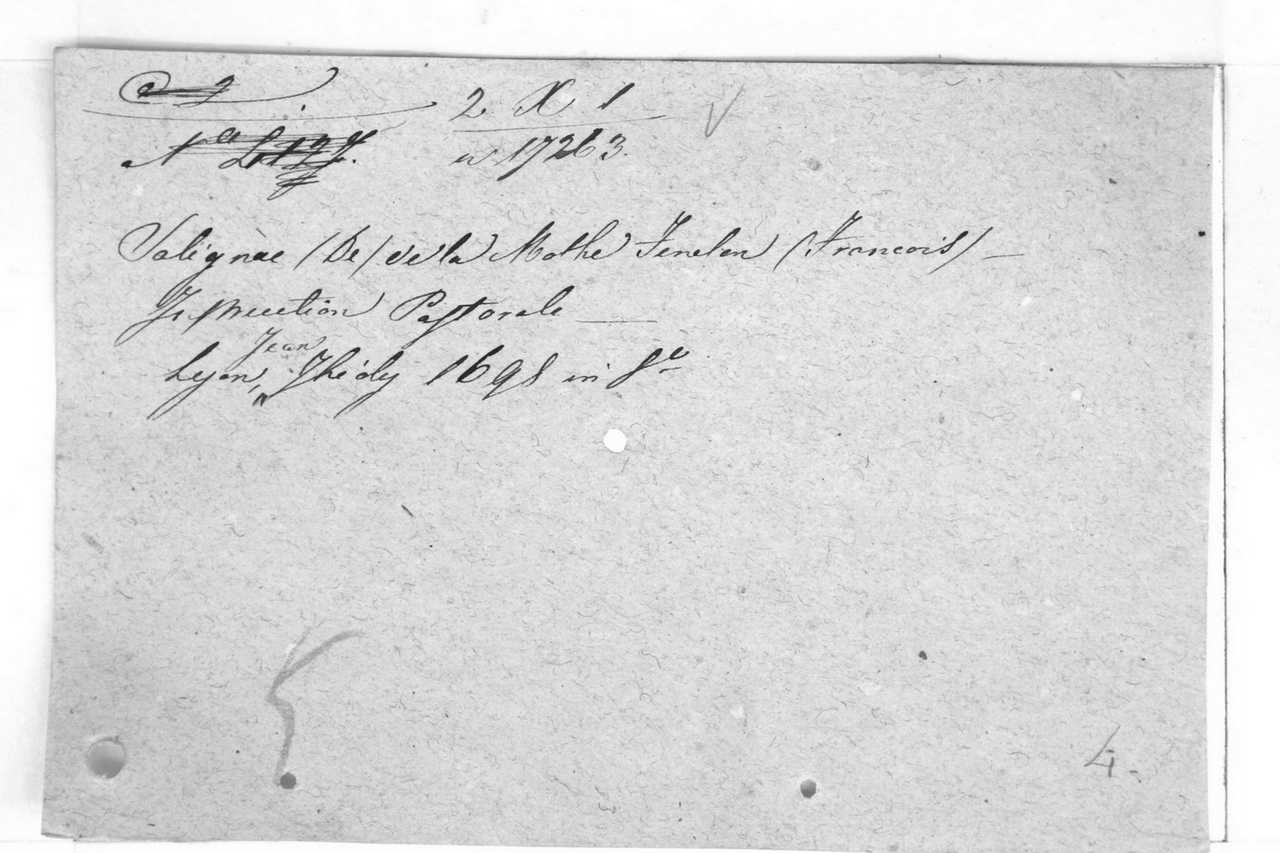 2 X 1
n 17263.
Salignac (De) de la Mothe Fenelon (Francois) —
Instruction Pastorale —
Jean
Lyon, Thédy 1698 in 8º
4.